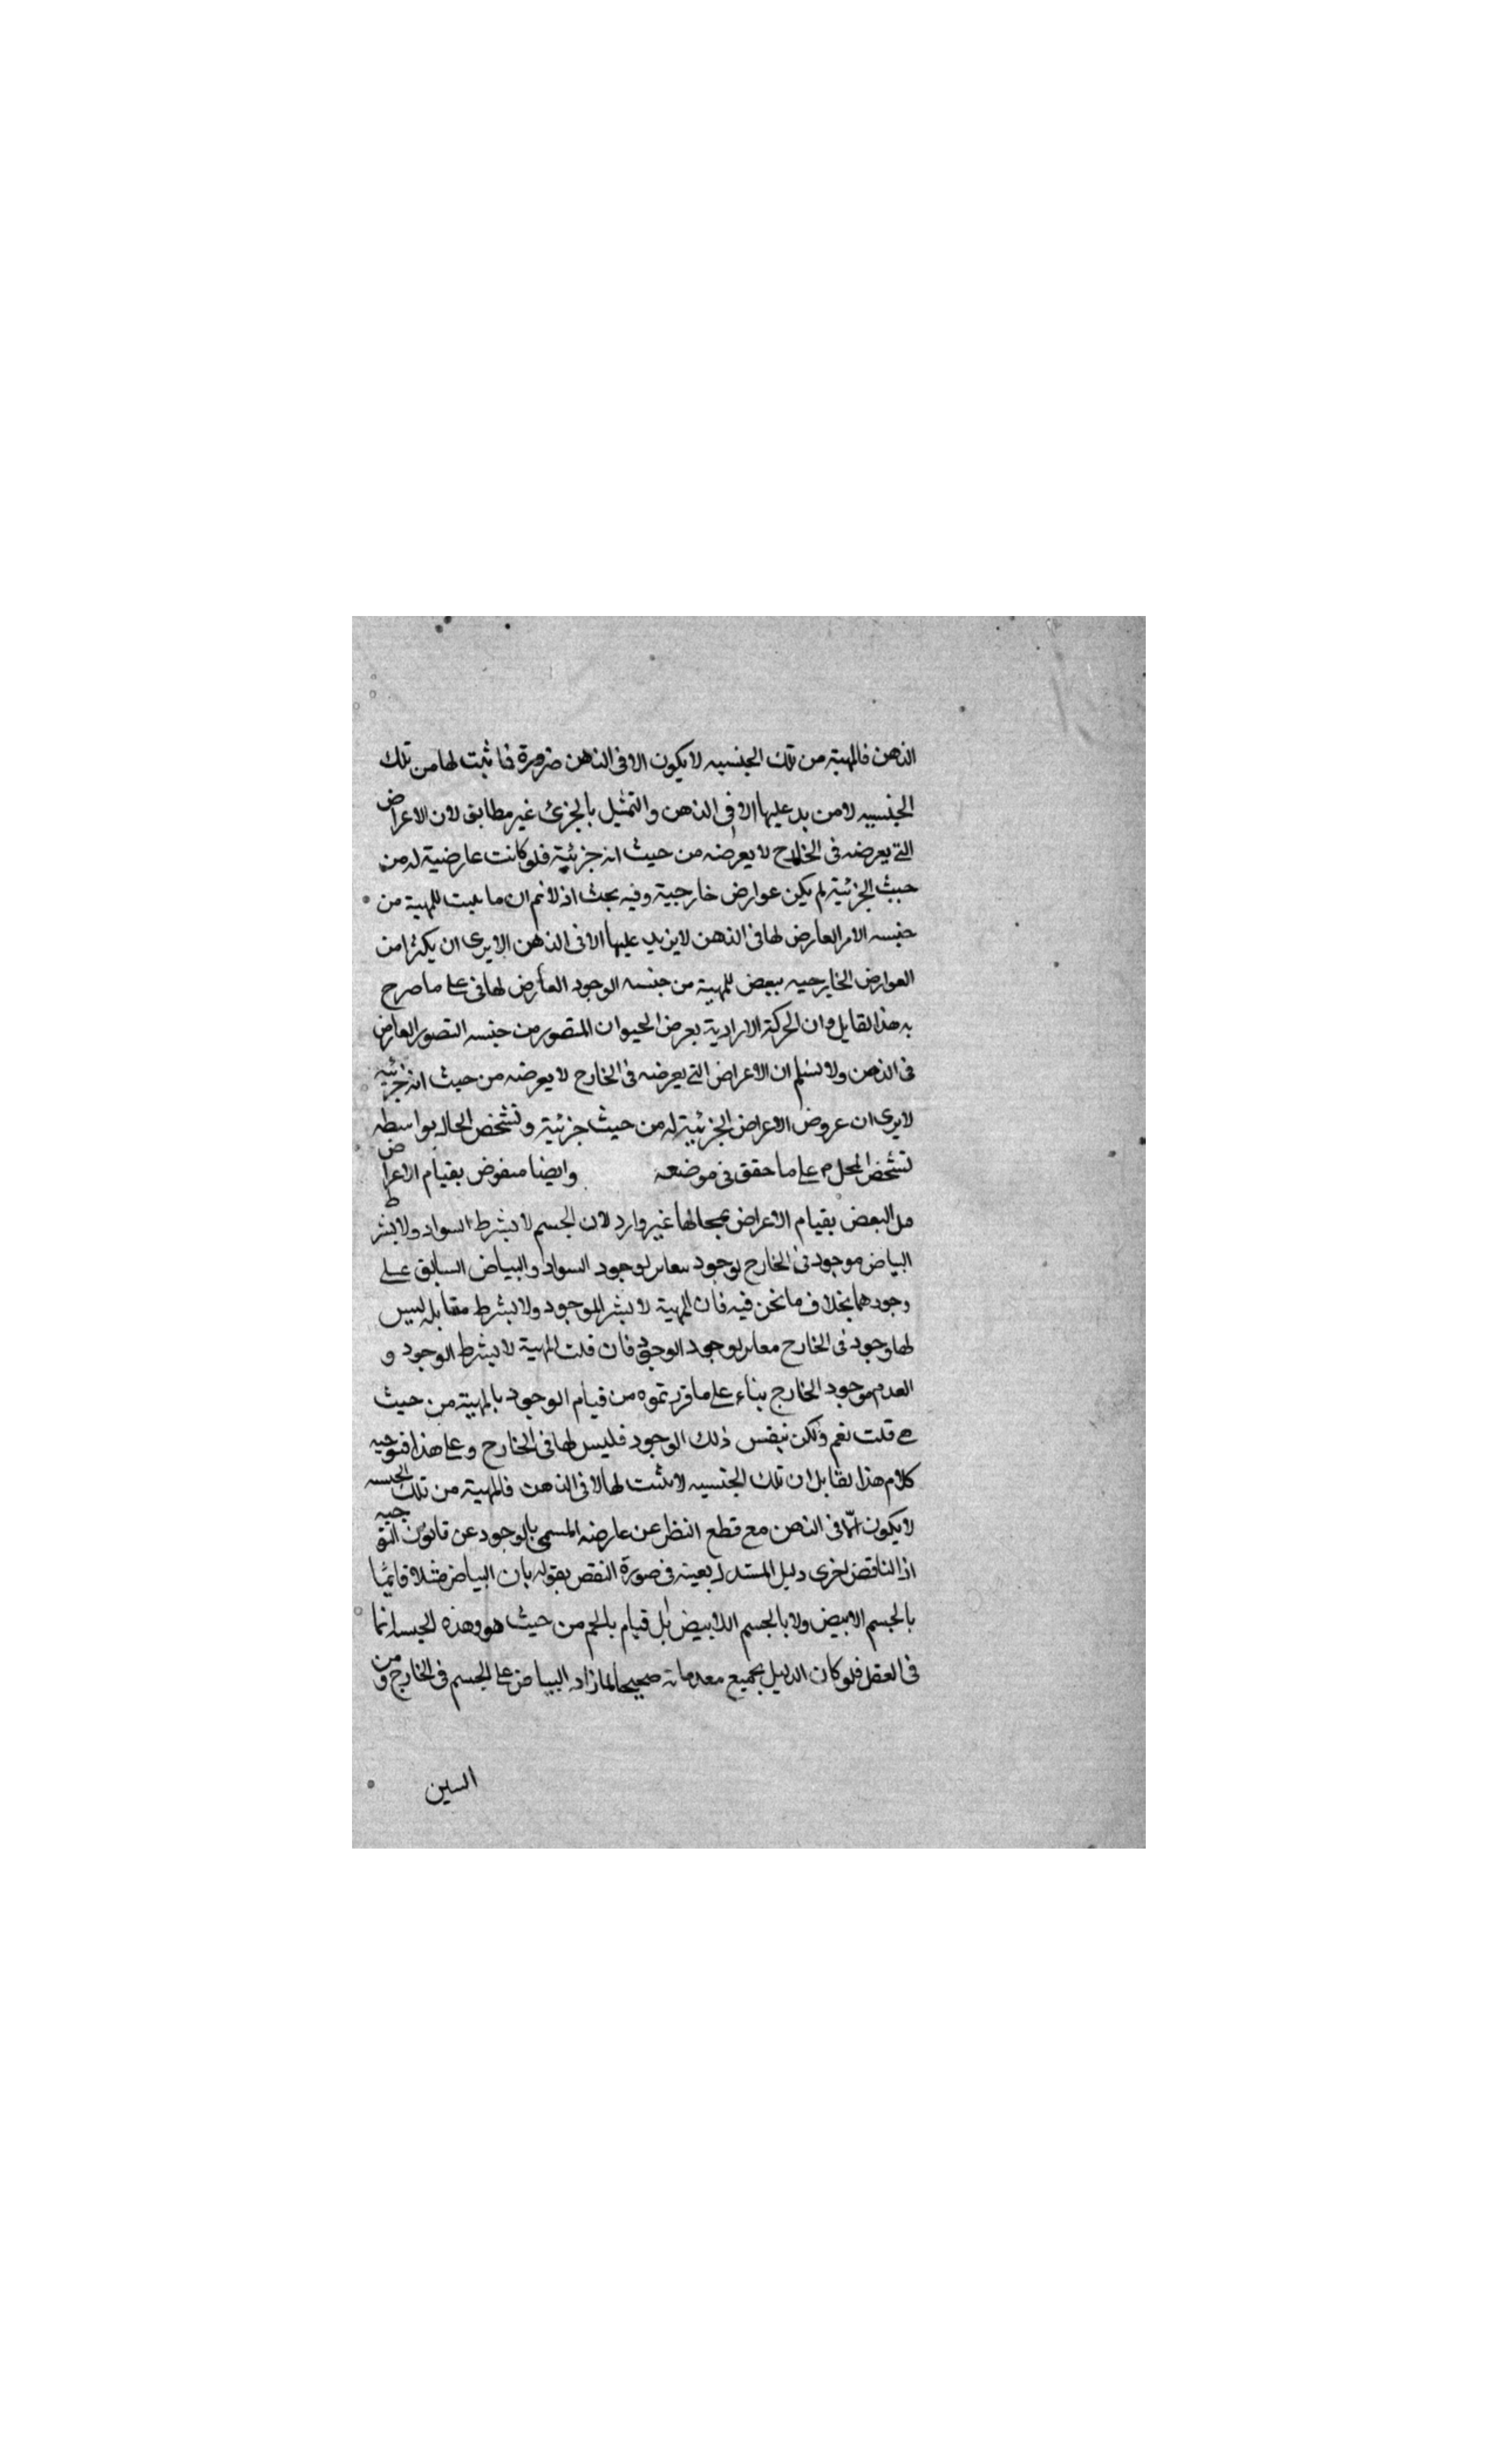 الذهن فالمهية من تلك الجنسيه لا يكون الا فى الذهن ضرورة فما ثبت لها من تلك
الجنسيه لا من يد عليها الا فى الذهن والتمثيل بالجزئ غير مطابق لان الاعراض
التى يعرضه فى الخارج لا يعرضه من حيث انه جزئية فلو كانت عارضية له من
حيث الجزئية لم يكن عوارض خارجية وفيه بحث اذ لانم ان ما يثبت للمهية من
جنسه الامر العارض لها فى الذهن لا يزيد عليها الا فى الذهن الا يرى ان يكثرا من
العوارض الخارجيه ببعض للمهية من جنسه الوجود العارض لها فى على ما صرح
به هذا القايل وان الحركة الارادية يعرض الحيوان المتصور من جنسه التصور العارض
فى الذهن ولا نسلم ان الاعراض التى يعرضه فى الخارج لا يعرضه من حيث انه جزئيه
لا يرى ان عروض الاعراض الجزئية له من حيث جزئية وتشخص الحال بواسطه
تشخص المحل م على ما حقق فى موضعه وايضا منقوض بقيام الاعراض
البعض بقيام الاعراض بمحالها غير وارد لان الجسم لا بشرط السواد ولا بشرط
البياض موجود فى الخارج بوجود مغاير لوجود السواد والبياض السابق على
وجودهما بخلاف ما نحن فيه فان المهية لا بشرط الموجود ولا بشرط مقابله ليس
لها وجود فى الخارج مغاير لوجود الوجود فان قلت المهية لا بشرط الوجود و
العدم موجود الخارج بناء على ما قررتموه من قيام الوجود بالمهية من حيث
هى قلت نعم ولكن بنفس ذلك الوجود فليس لها فى الخارج وعلى هذا فتوجيه
كلام هذا القايل ان تلك الجنسيه لا يثبت لها الا فى الذهن فالمهية من تلك الجنسه
لا يكون الا فى الذهن مع قطع النظر عن عارضه المسمى بالوجود عن قانون التوجيه
اذ الناقض اجرى دليل المستدل بعينه فى صورة النقض بقوله بان البياض مثلا قائما
بالجسم الابيض ولا بالجسم اللاابيض بل قيام بالجسم من حيث هو وهذه الجنسه انما
فى العقل فلو كان الدليل بجميع مقدماته صحيحا لما زاد البياض على الجسم فى الخارج ومن
السين